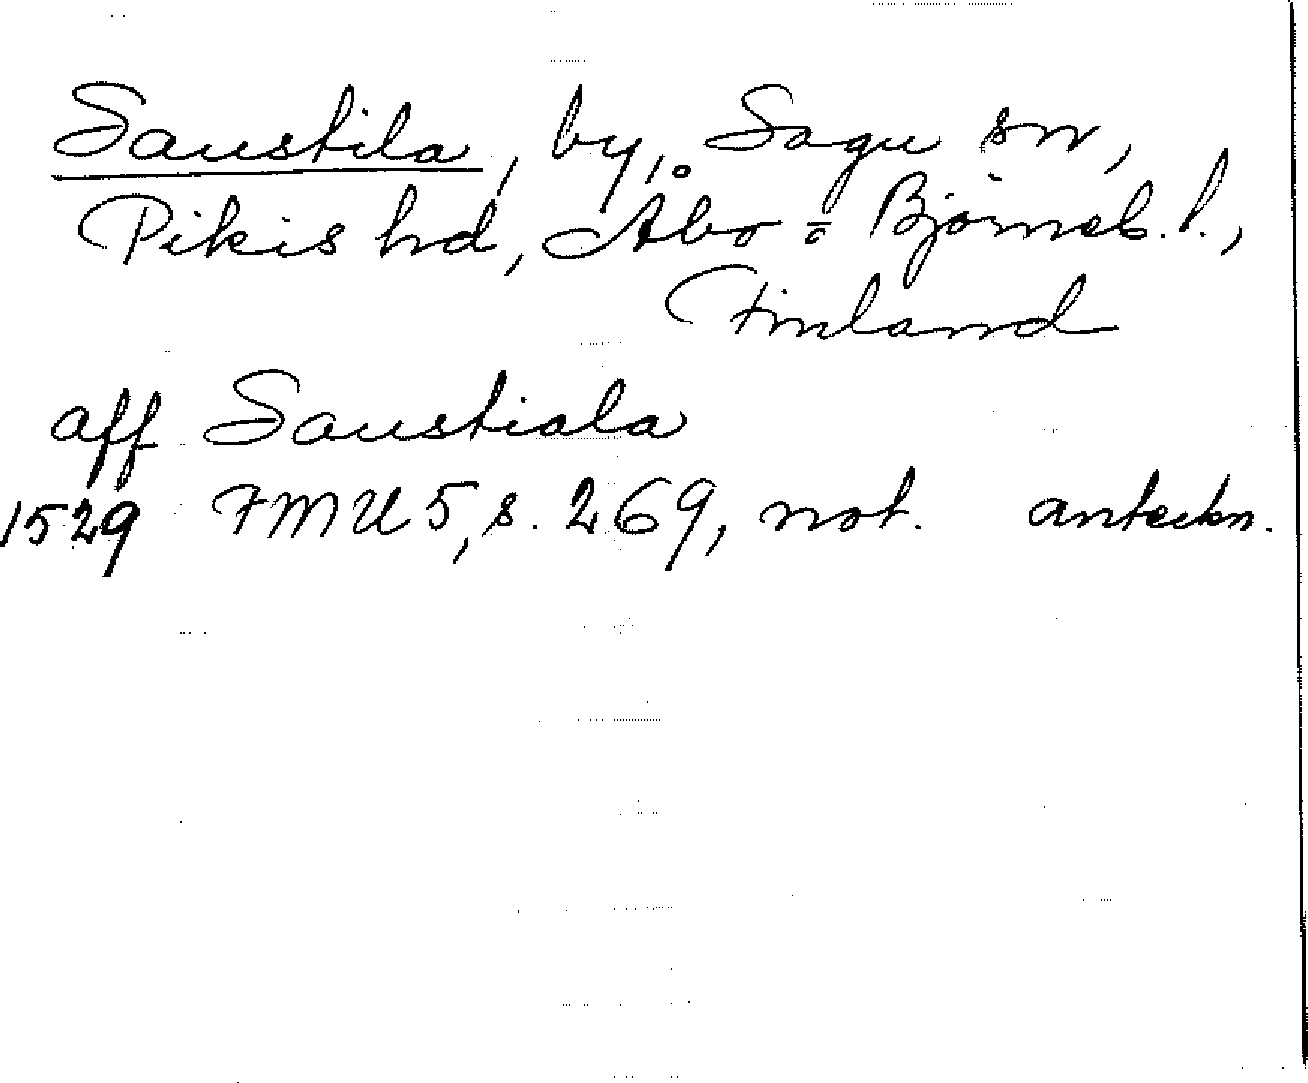 Saustila, by, Sagu sn,
Pikis hd, Åbo- o Björneb. l.,
Finland
aff Saustiala
1529 FMU 5, s. 269, not. anteckn.